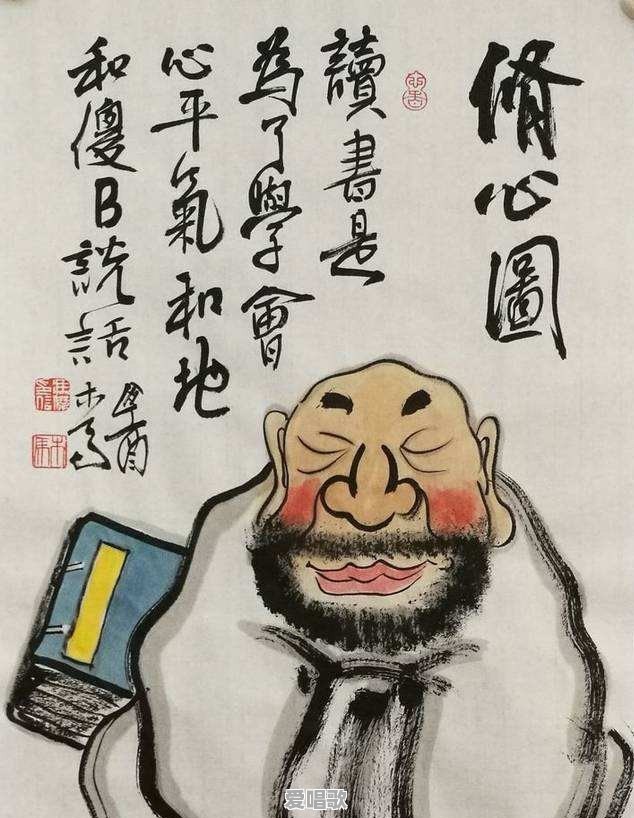 脩心圖
讀書是
為了學會
心平氣和地
和傻B説話
爱唱歌